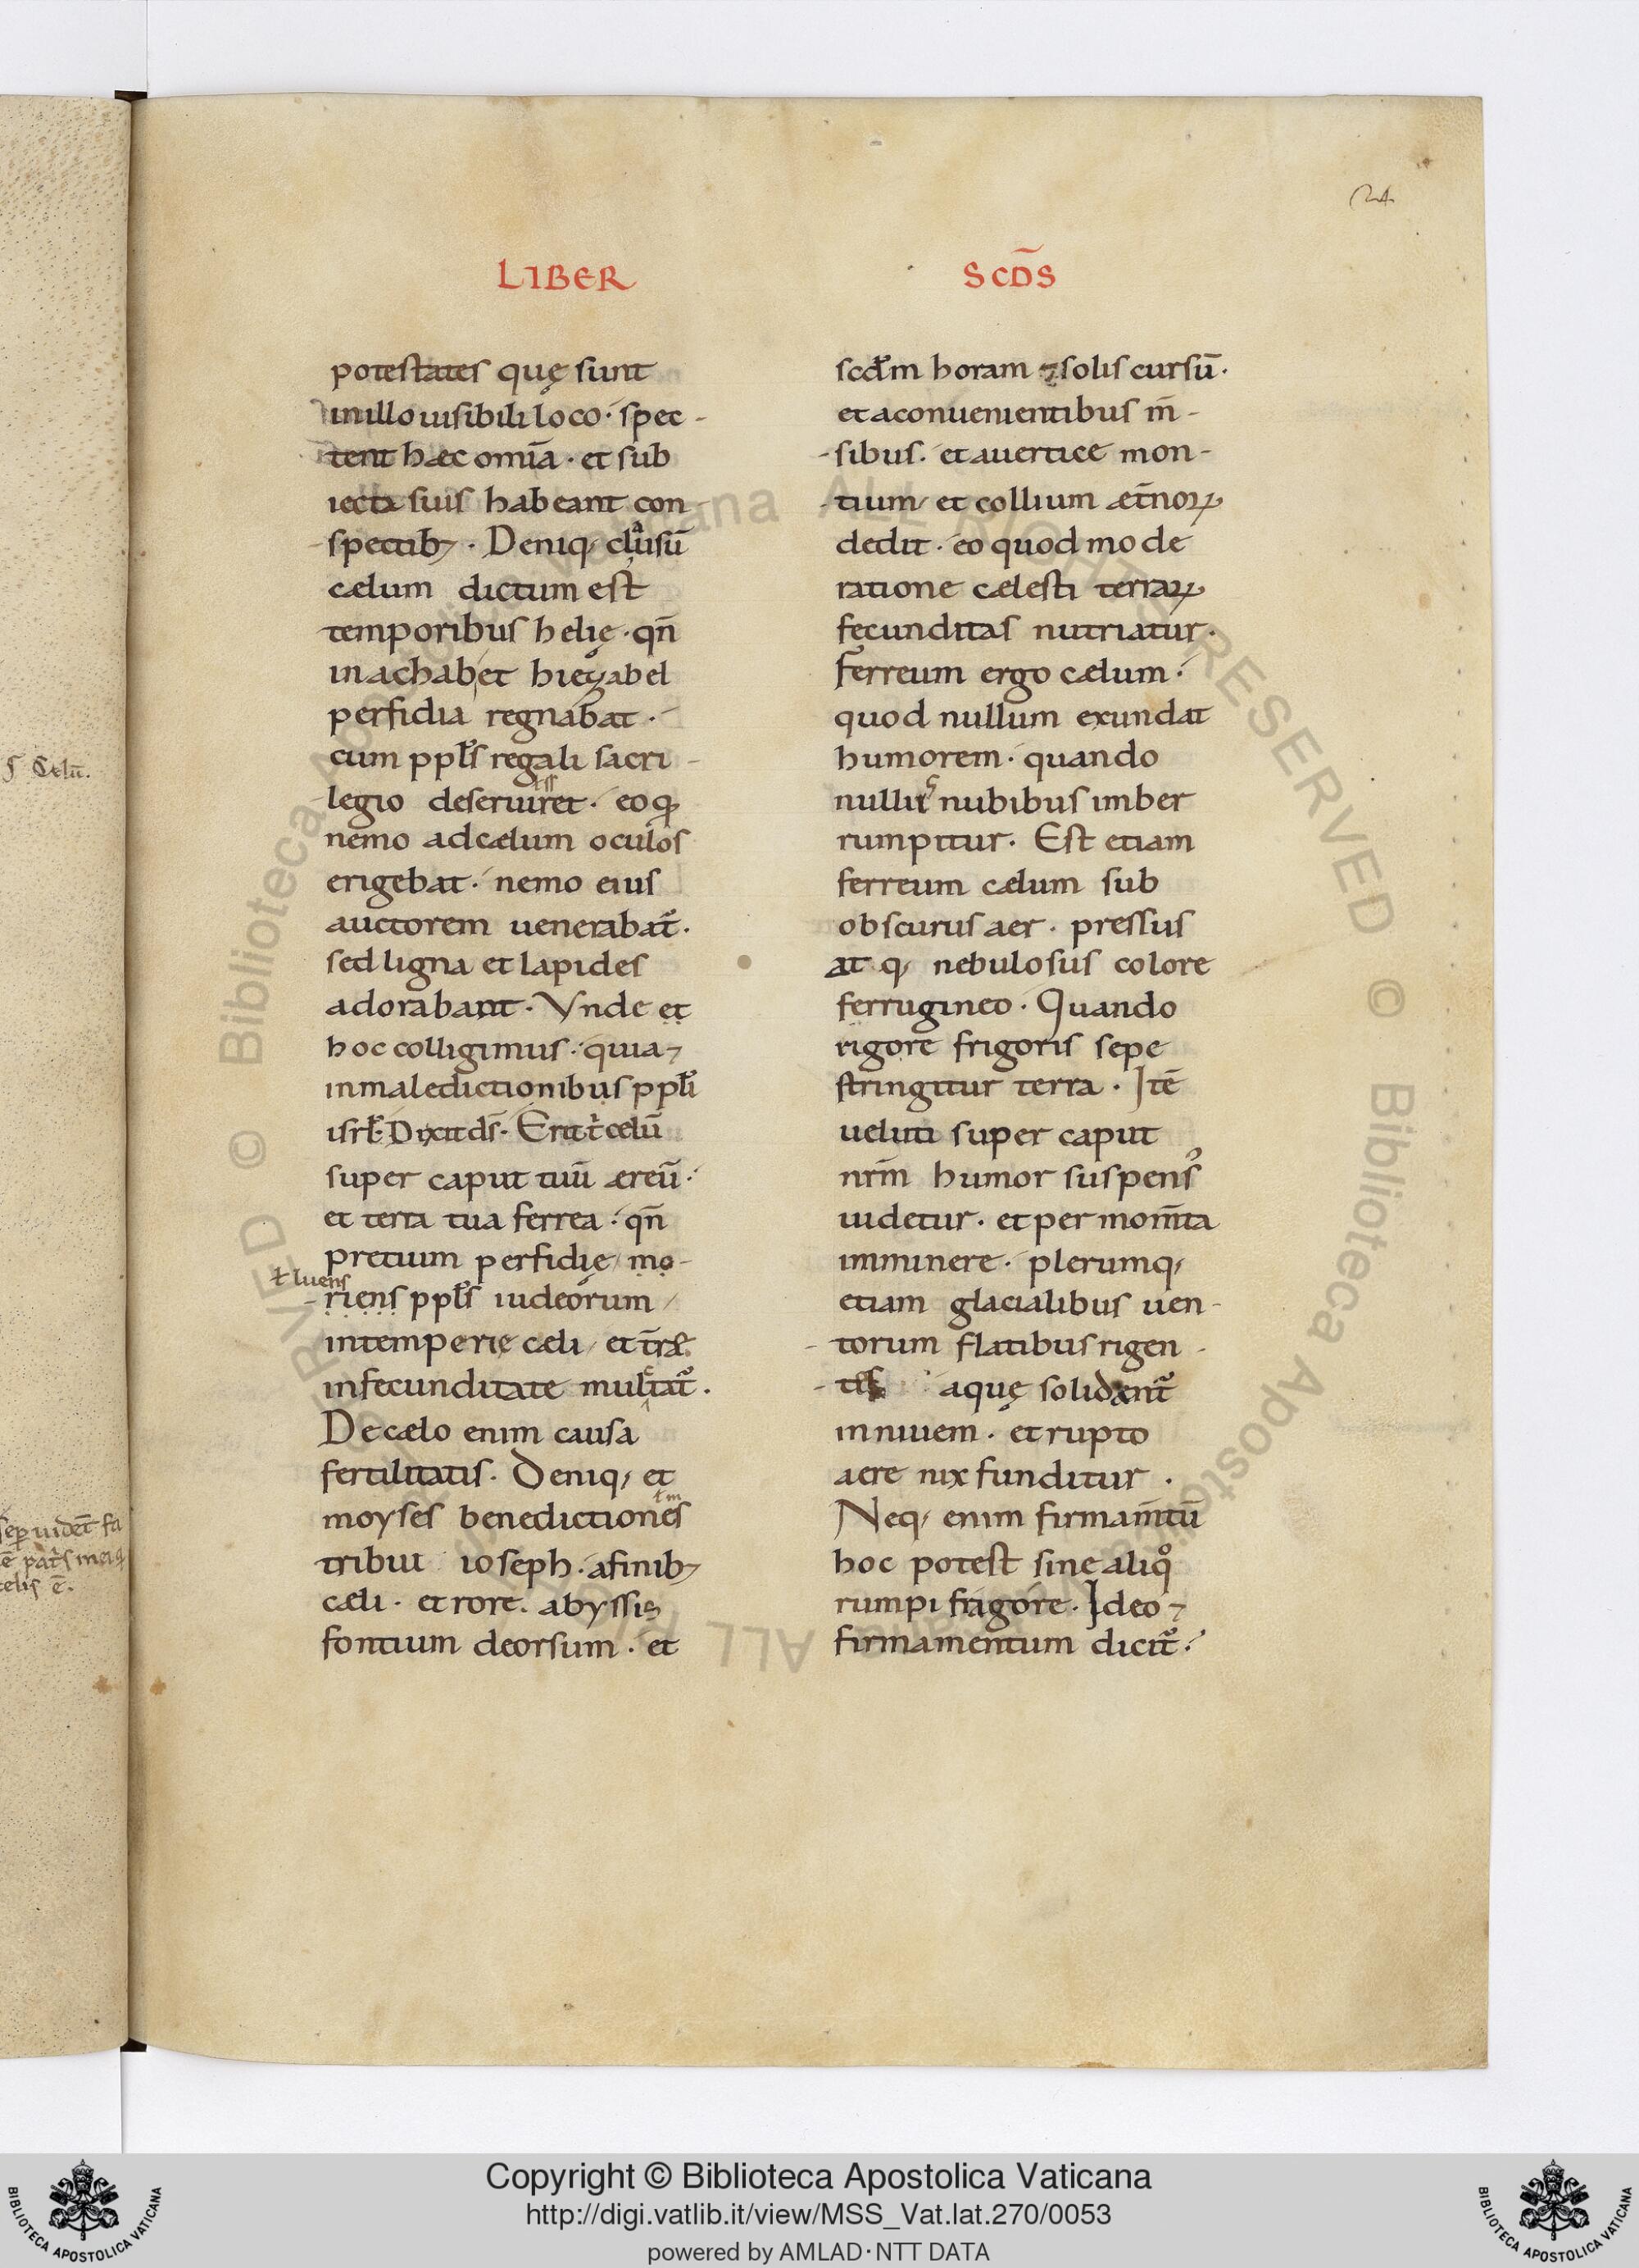 24
LIBER
SCD̄S
potestates quę sunt
inillo uisibili loco · spec-
tent hæc omīa · et sub
iecta suis habeant con
spectib; · Deniq; clausū
cælum dictum est
temporibus helię · qn̄
in achab et hiezabel
perfidia regnabat ·
cum ppłs regali sacri-
legio deseruiret · eoq
nemo ad cælum oculos
erigebat · nemo eius
auctorem uenerabat᷑ ·
sed ligna et lapides
adorabant · Vnde et
hoc colligimus · quia ⁊
in maledictionibus ppłi
isrł · Dixit ds̄ · Erit t̓ cælū
super caput tuū æreū ·
et terra tua ferrea · qn̄
pretium perfidię mo-
ł luens
riens ppłs iudeorum
intemperię cæli et t̄ræ
infecunditate multat᷑ ·
De cælo enim causa
fertilitatis · Deniq; et
moyses benedictiones
tribui ioseph · afinib;
cæli · et rore · abyssis
fontium deorsum · et
scđm horam ⁊ solis cursū ·
et aconuenientibus m̄-
sibus · et auertice mon-
tium et collium æt̄noꝝ
dedit · eo quod mode
ratione cælesti terraꝝ
fecunditas nutriatur ·
Ferreum ergo cælum ·
quod nullum exundat
humorem · quando
nullis nubibus imber
rumpitur · Est etiam
ferreum cælum sub
obscurus aer · pressus
atq; nebulosus colore
ferrugineo · Quando
rigore frigoris sepe
stringitur terra · Itē
ueluti super caput
nrm̄ humor suspens᾽
uidetur · et per mom̄ta
imminere · plerumq;
etiam glacialibus uen-
torum flatibus rigen-
tis aquę solidant᷑
in niuem · et rupto
aere nix funditur ·
Neq; enim firmam̄tū
hoc potest sine aliqͦ
rumpi fragore · Ideo ⁊
firmamentum dicit᷑ ·
Copyright © Biblioteca Apostolica Vaticana
http://digi.vatlib.it/view/MSS_Vat.lat.270/0053
powered by AMLAD·NTT DATA
BIBLIOTECA APOSTOLICA VATICANA
BIBLIOTECA APOSTOLICA VATICANA